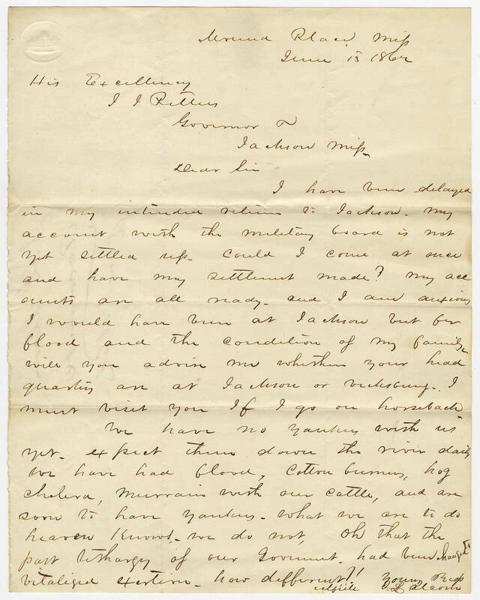 Mound Place, Miss
June 13 1862
His Excellency
J J Pettus
Governor
Jackson Miss.
Dear Sir
I have been delayed
in my intended return to Jackson. My
account with the military board is not
yet settled up. Could I come at once
and have my settlement made? My acc
ounts are all ready. and I am anxious
I would have been at Jackson but for
flood and the condition of my family.
will you advise me whether your head
quarters are at Jackson or Vicksburg. I
must visit you If I go on horseback
We have no Yankees with us
yet. expect them down the river daily
We have had flood, Cotton burners, hog
cholera, murrain with our cattle, and are
soon to have Yankees. What we are to do
heaven knows. we do not. Oh that the
past lethargy of our Goverment. had been changed to
vitalized exertion. how different!! Yours Resp